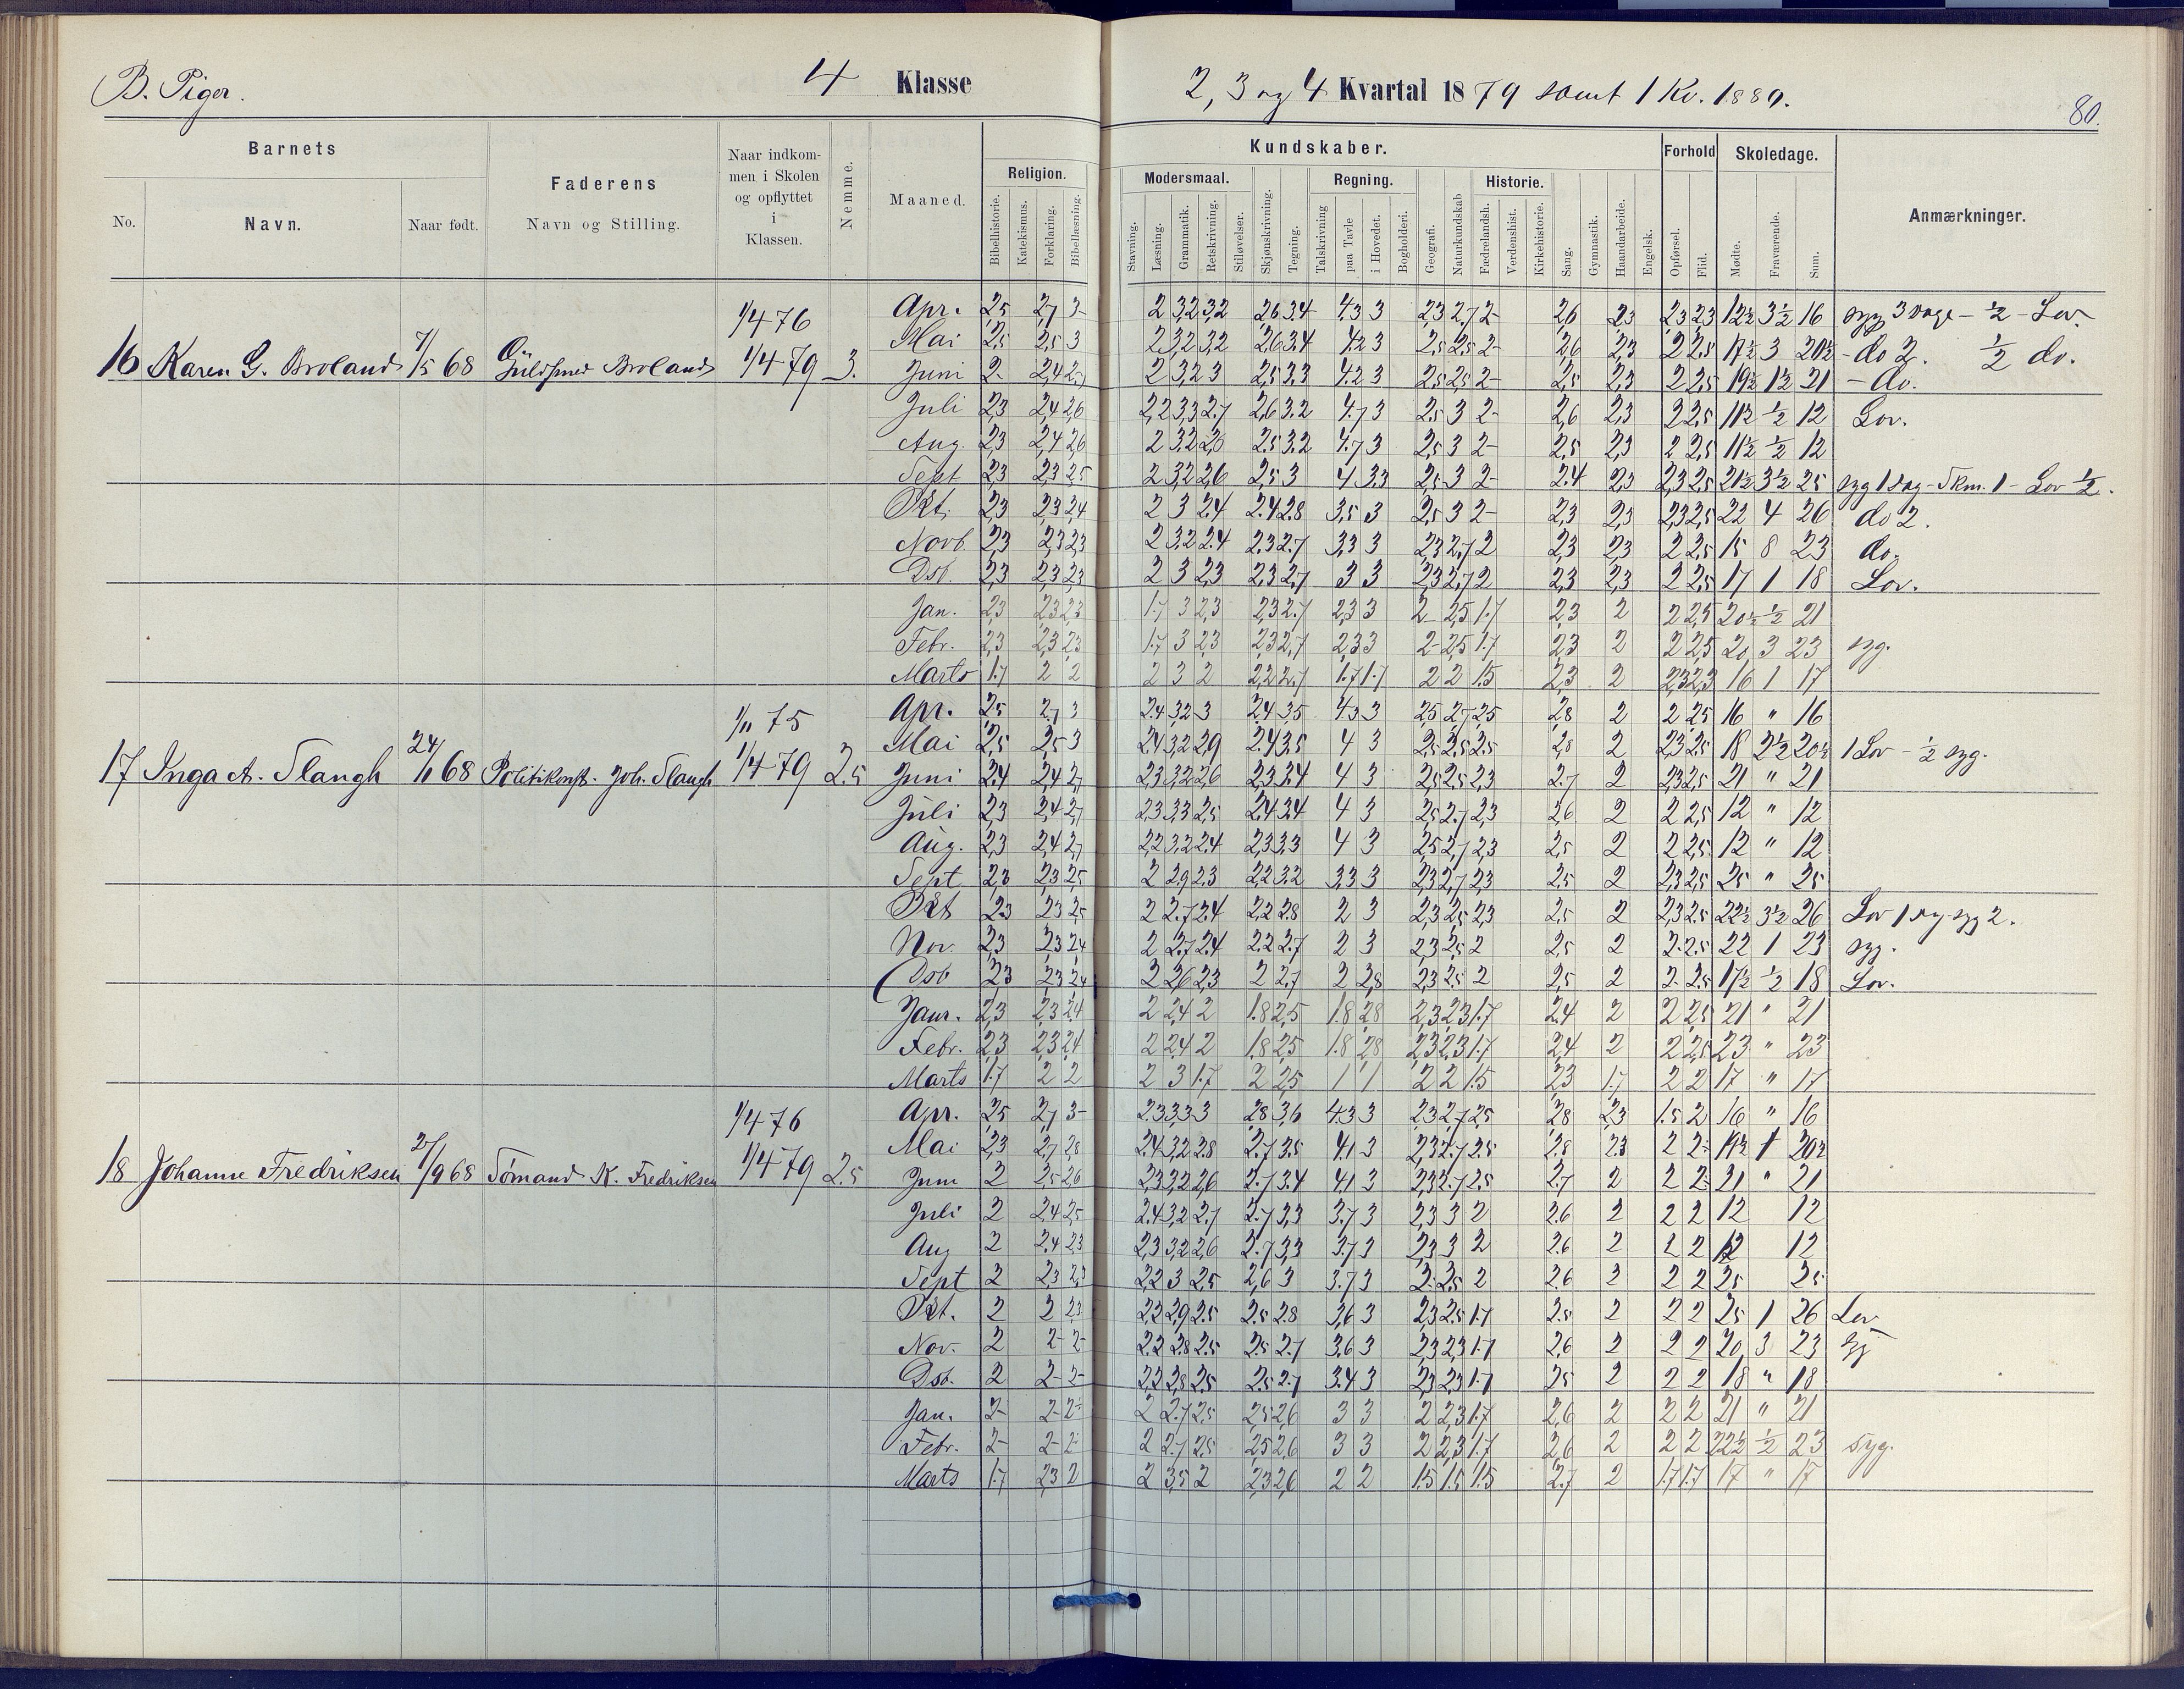 B. Piger.
4 Klasse
2, 3 og 4 Kvartal 1879 samt 1 Kv. 1880.
80.
Barnets
No.
Navn.
Naar født.
Faderens
Navn og Stilling.
Naar indkom-
men i Skolen
og opflyttet
i
Klassen.
Nemme.
Maaned.
Kundskaber.
Religion.
Bibelhistorie.
Katekismus.
Forklaring.
Bibellæsning.
Modersmaal.
Stavning.
Læsning.
Grammatik.
Retskrivning.
Stiløvelser.
Skjønskrivning.
Tegning.
Regning.
Talskrivning
paa Tavle
i Hovedet.
Bogholderi.
Geografi.
Naturkundskab
Historie.
Fædrelandsh.
Verdenshist.
Kirkehistorie.
Sang.
Gymnastik.
Haandarbeide.
Engelsk.
Forhold
Opførsel.
Flid.
Skoledage.
Mødte.
Fraværende.
Sum.
Anmærkninger.
16 Karen G. Broland 7/5 68 Guldsmed Broland 1/4 76 1/4 79 3.
Apr. 2,5 2,7 3- 2 3,2 3,2 2,6 3.4 4.3 3 2,3 2,7 2- 2,6 2,3 2,3 2,3 12½ 3½ 16 syg 3 dage - ½ - Lov.
Mai 2,5 2,5 3 2 3,2 3,2 2,6 3,4 4,2 3 2,5 2,5 2- 2,6 2,3 2 2,5 17½ 3 20½ - do 2. ½ do.
Juni 2- 2,4 2,7 2 3,2 3 2,5 3,3 4.2 3 2,5 2,5 2- 2,5 2,3 2 2,5 19½ 1½ 21 - do.
Juli 2,3 2,4 2,6 2,2 3,3 2.7 2,6 3.2 4.7 3 2.5 3 2- 2,6 2,3 2 2,5 11½ ½ 12 Lov.
Aug. 2,3 2,4 2,6 2 3,2 2,6 2.5 3.2 4.7 3 2,5 3 2- 2,5 2,3 2 2,5 11½ ½ 12
Sept 2,3 2,3 2,5 2 3,2 2,6 2,5 3 4 3.3 2,5 3 2- 2.4 2,3 2,3 2,5 21½ 3½ 25 syg 1 dag - Skm. 1 - Lov ½.
Okt. 2,3 2,3 2,4 2 3 2.4 2.4 2.8 3,5 3 2,5 3 2- 2,3 2,3 2,3 2,5 22 4 26 do 2.
Novb. 2,3 2,3 2,3 2 3,2 2.4 2.3 2.7 3,3 3 2,3 2,7 2 2,3 2,3 2 2,5 15 8 23 do.
Dsb. 2,3 2,3 2,3 2 3 2,3 2,3 2,7 3 3 2,3 2,7 2 2,3 2,3 2 2,5 17 1 18 Lov.
Jan. 2,3 2,3 2,3 1.7 3 2,3 2,3 2.7 2,3 3 2- 2,5 1.7 2,3 2 2 2,5 20½ ½ 21
Febr. 2,3 2,3 2,3 1.7 3 2,3 2,3 2,7 2,3 3 2- 2,5 1.7 2,3 2 2 2,5 20 3 23 syg.
Marts 1.7 2 2 2 3 2 2,2 2.7 1.7 1.7 2 2 1.5 2,3 2 2,3 2,3 16 1 17
17 Inga A. Slangh 24/11 68 Politikonst. Joh. Slangh 1/11 75 1/4 79 2.5
Apr. 2,5 2,7 3 2.4 3,2 3 2,4 3,5 4.3 3 2,5 2,7 2,5 2,8 2 2 2,5 16 " 16
Mai 2,5 2,5 3 2.4 3,2 2,9 2.4 3,5 4 3 2,5 2,5 2,5 2,8 2 2,3 2,5 18 2½ 20½ 1 Lov - ½ syg.
Juni 2.4 2,4 2,7 2,3 3,2 2,6 2,3 3.4 4 3 2,5 2,5 2,3 2.7 2 2,3 2,5 21 " 21
Juli 2,3 2,4 2,7 2,3 3,3 2,5 2.4 3.4 4 3 2,5 2.7 2,3 2,6 2 2 2,5 12 " 12
Aug. 2,3 2,4 2,7 2,2 3,2 2.4 2,3 3,3 4 3 2,5 2,7 2,3 2,5 2 2 2,5 12 " 12
Sept 2,3 2,3 2,5 2 2,9 2,3 2,2 3.2 3,3 3 2,3 2,7 2,3 2,5 2 2,3 2,5 25 " 25
Okt 2.3 2,3 2,5 2 2.7 2.4 2,2 2.8 2 3 2,3 2,5 2,3 2,5 2 2,3 2.5 22½ 3½ 26 Lov 1 og syg 2.
Nov. 2,3 2,3 2,4 2 2.7 2.4 2.2 2.7 2 3 2,3 2,5 2 2,5 2 2 2,5 22 1 23 syg.
Dsb 2,3 2,3 2,4 2 2,6 2,3 2 2,7 2 2,8 2,3 2,5 2 2,5 2 2 2,5 17½ ½ 18 Lov.
Janr. 2,3 2,3 2.4 2 2,4 2 1.8 2,5 1.8 2.8 2,3 2,3 1.7 2.4 2 2 2,5 21 " 21
Febr. 2,3 2,3 2,4 2 2.4 2 1.8 2.5 1.8 2,8 2,3 2,3 1.7 2,4 2 2 2,5 23 " 23
Marts 1.7 2 2 2 3 1.7 2 2,5 1 1 2 2 1.5 2,3 1.7 2 2 17 " 17
18 Johanne Fredriksen 27/9 68 Sömand K. Fredriksen 1/4 76 1/4 79 2.5
Apr. 2,5 2,7 3- 2.3 3,3 3 2,8 3,6 4.3 3 2,3 2,7 2,5 2,8 2,3 1.5 2 16 " 16
Mai 2,3 2,7 2,8 2.4 3,2 2,8 2.7 3.5 4.1 3 2,3 2.7 2.5 2.8 2.3 2 2 19½ 1 20½
Juni 2 2,5 2,6 2,3 3,2 2,6 2.7 3.4 4.1 3 2,3 2.7 2,5 2.7 2 2 2 21 " 21
Juli 2 2,4 2,5 2.4 3,2 2,7 2.7 3,3 3.7 3 2,3 3 2 2.6 2 2 2 12 12
Aug 2 2.4 2,3 2,3 3,2 2,6 2.7 3,3 3.7 3 2,3 3 2 2.6 2 2 2 12 12
Sept 2 2,3 2,3 2,2 3 2,5 2,6 3 3.7 3 2 2,5 2 2.6 2 2 2 25 25
Okt. 2 2 2,3 2,2 2,9 2.5 2.5 2.8 3,6 3 2,3 2.5 1.7 2.5 2 2 2 25 1 26 Lov
Nov. 2 2- 2- 2.2 2.8 2.5 2.5 2.7 3.6 3 2,3 2,3 1.7 2,6 2 2 2 20 3 23 syg
Dsb. 2 2- 2- 2,2 2,8 2.5 2.5 2.7 3.4 3 2,3 2,3 1.7 2,5 2 2 2 18 " 18
Jan. 2- 2- 2- 2 2.7 2.5 2,5 2,6 3 3 2 2,3 1.7 2,6 2 2 2 21 " 21
Febr. 2- 2- 2- 2 2.7 2.5 2,5 2,6 3 3 2 2,3 1.7 2,6 2 2 2 22½ ½ 23 syg.
Marts 1.7 2,3 2 2 3,5 2 2,3 2,6 2 2 1.5 1.5 1.5 2.7 2 1.7 1.7 17 " 17